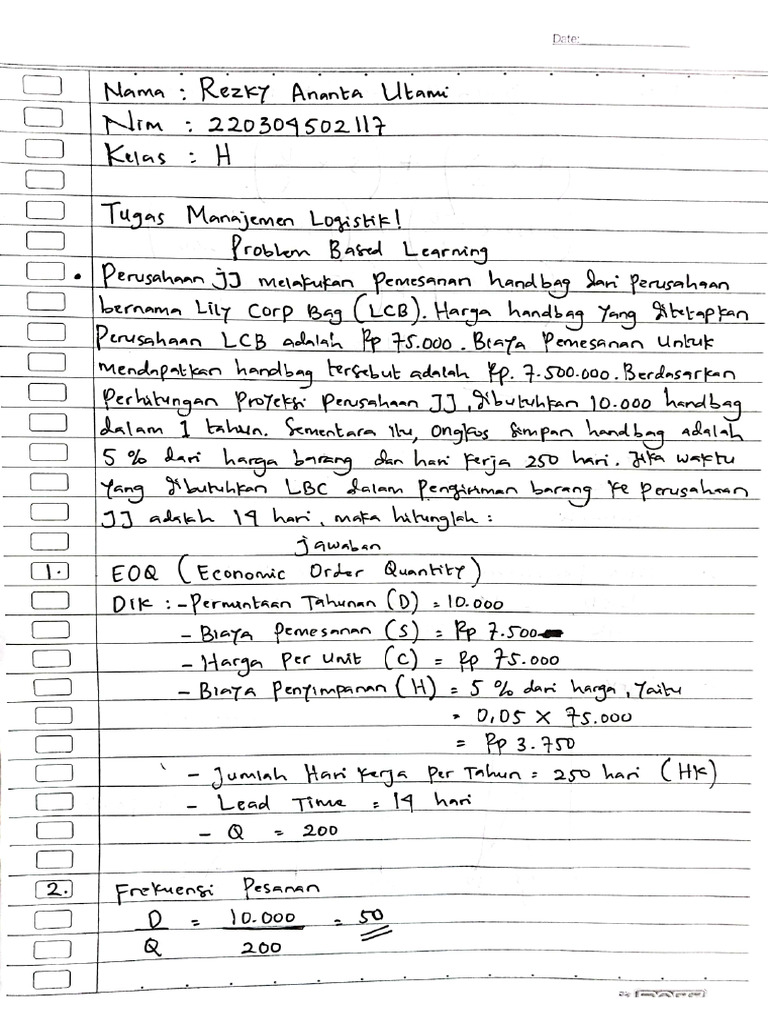 Date:
Nama : Rezky Ananta Utami
Nim : 220304502117
Kelas : H
Tugas Manajemen Logistik!
Problem Based Learning
• Perusahaan JJ melakukan pemesanan handbag dari perusahaan
bernama Lily Corp Bag (LCB). Harga handbag yang ditetapkan
Perusahaan LCB adalah Rp 75.000. Biaya Pemesanan Untuk
mendapatkan handbag tersebut adalah Rp. 7.500.000. Berdasarkan
Perhitungan Proyeksi Perusahaan JJ, dibutuhkan 10.000 handbag
dalam 1 tahun. Sementara itu, ongkos simpan handbag adalah
5 % dari harga barang dan hari kerja 250 hari. Jika waktu
yang dibutuhkan LBC dalam pengiriman barang ke perusahaan
JJ adalah 14 hari, maka hitunglah :
jawaban
1. EOQ (Economic Order Quantity)
Dik : - Permintaan Tahunan (D) = 10.000
- Biaya Pemesanan (S) = Rp 7.500
- Harga Per Unit (C) = Rp 75.000
- Biaya Penyimpanan (H) = 5 % dari harga, Yaitu
= 0,05 × 75.000
= Rp 3.750
- Jumlah Hari Kerja Per Tahun = 250 hari (HK)
- Lead Time = 14 hari
- Q = 200
2. Frekuensi Pesanan
D = 10.000 = 50
Q 200